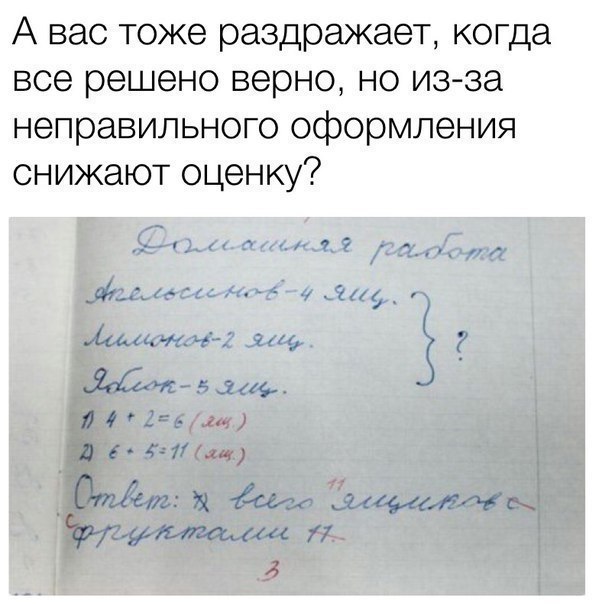 А вас тоже раздражает, когда
все решено верно, но из-за
неправильного оформления
снижают оценку?
Домашняя работа
Апельсинов-4 ящ.
Лимонов-2 ящ.
Яблок-5 ящ.
?
1) 4 + 2=6 (ящ.)
2) 6 + 5=11 (ящ.)
Ответ: всего 11 ящиков с
с фруктами 11.
3